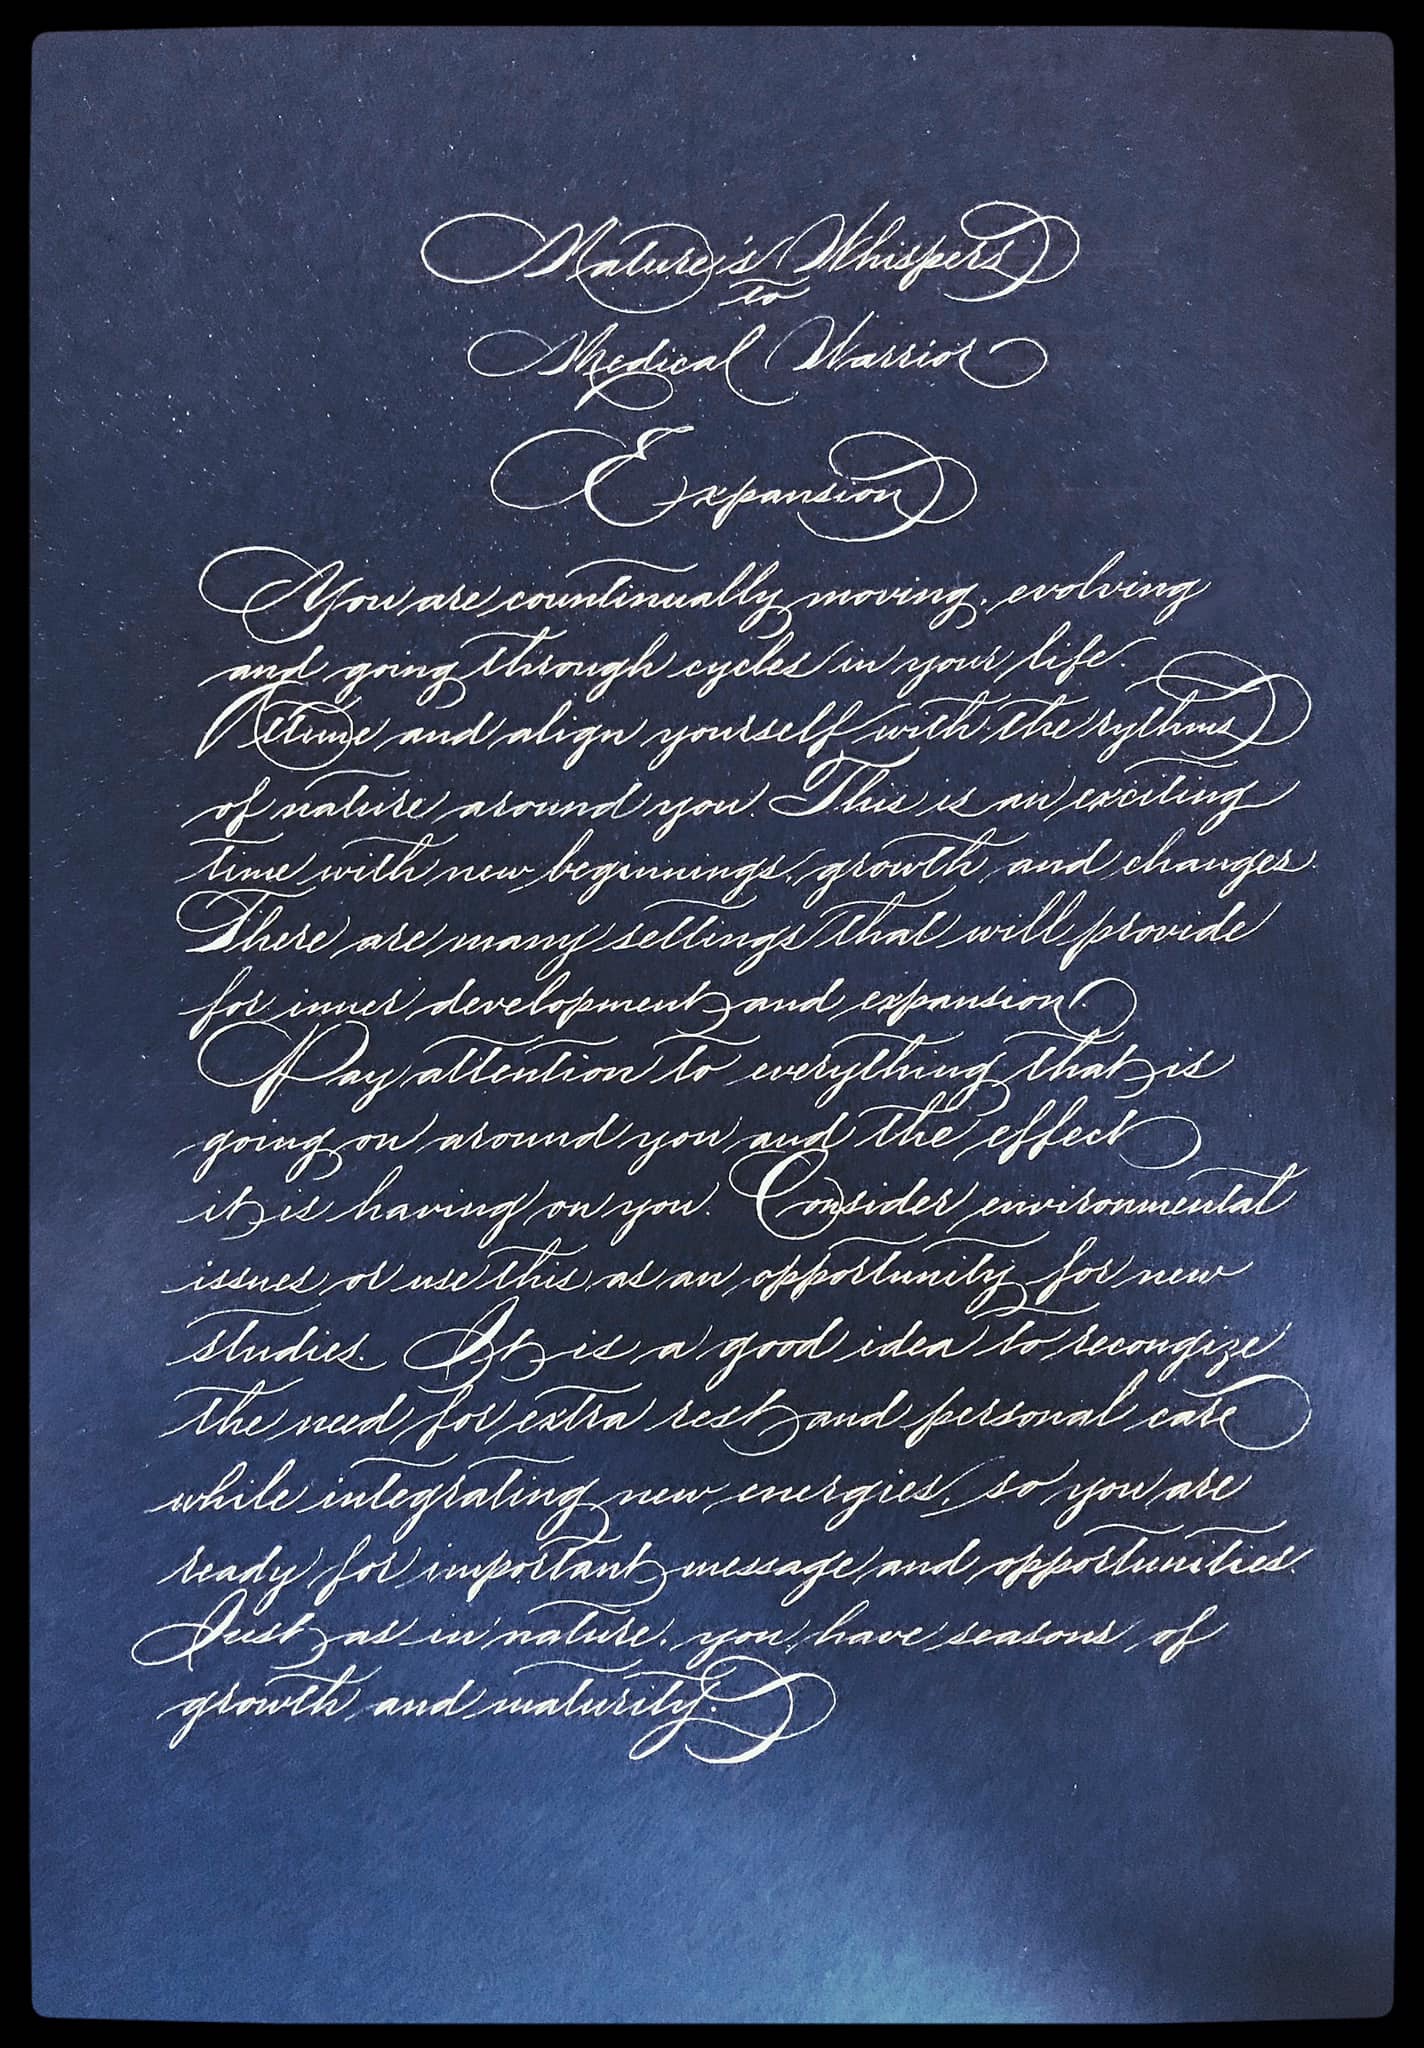 Nature's Whispers
to
Medical Warrior
Expansion
You are countinually moving, evolving
and going through cycles in your life.
Attune and align yourself with the rythms
of nature around you. This is an exciting
time with new beginnings, growth and changes.
There are many settings that will provide
for inner development and expansion.
Pay attention to everything that is
going on around you and the effect
it is having on you. Consider environmental
issues or use this as an opportunity for new
studies. It is a good idea to recongize
the need for extra rest and personal care
while integrating new energies, so you are
ready for important message and opportunities.
Just as in nature, you have seasons of
growth and maturity.